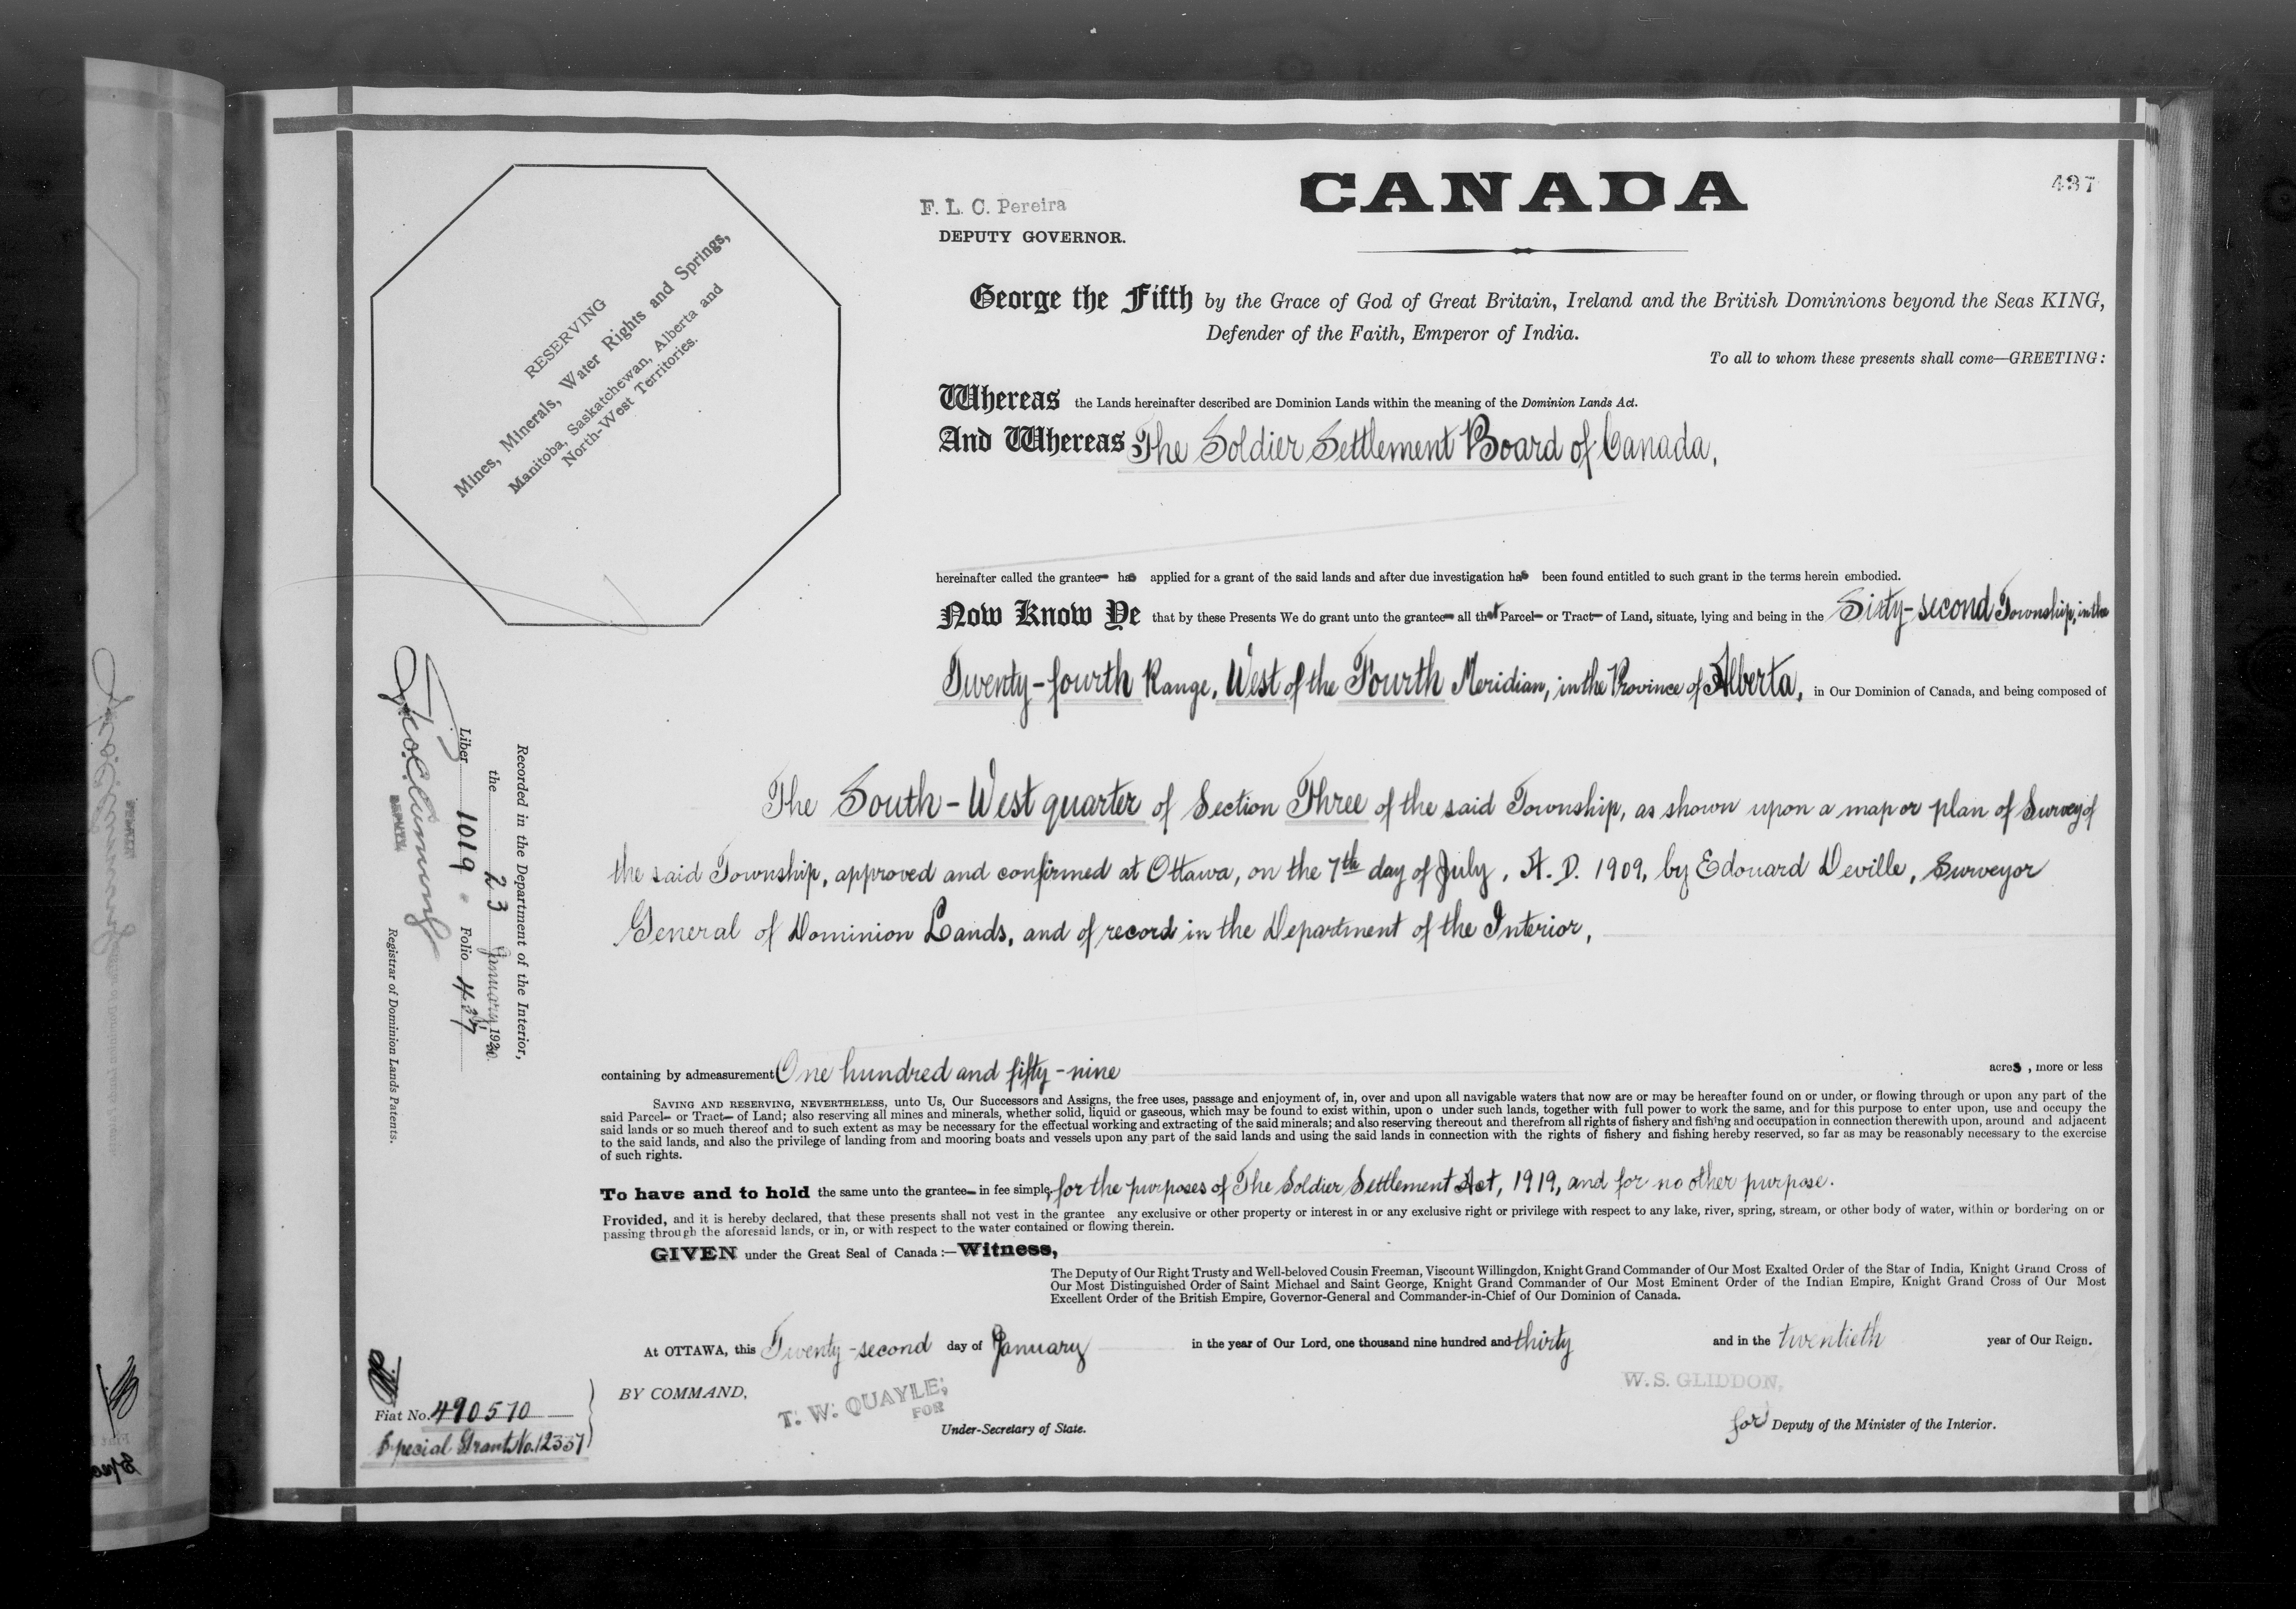 437
CANADA
F. L. C. Pereira
DEPUTY GOVERNOR.
RESERVING
Mines, Minerals, Water Rights and Springs,
Manitoba, Saskatchewan, Alberta and
North-West Territories.
George the Fifth by the Grace of God of Great Britain, Ireland and the British Dominions beyond the Seas KING,
Defender of the Faith, Emperor of India.
To all to whom these presents shall come—GREETING:
Whereas the Lands hereinafter described are Dominion Lands within the meaning of the Dominion Lands Act.
And Whereas The Soldier Settlement Board of Canada,
hereinafter called the grantee has applied for a grant of the said lands and after due investigation has been found entitled to such grant in the terms herein embodied.
Now Know Ye that by these Presents We do grant unto the grantee all that Parcel or Tract of Land, situate, lying and being in the Sixty-second Township, in the
Twenty-fourth Range, West of the Fourth Meridian, in the Province of Alberta, in Our Dominion of Canada, and being composed of
The South-West quarter of Section Three of the said Township, as shown upon a map or plan of Survey of
the said Township, approved and confirmed at Ottawa, on the 7th day of July, A. D. 1909, by Edouard Deville, Surveyor
General of Dominion Lands, and of record in the Department of the Interior,
containing by admeasurement One hundred and fifty-nine acres, more or less
SAVING AND RESERVING, NEVERTHELESS, unto Us, Our Successors and Assigns, the free uses, passage and enjoyment of, in, over and upon all navigable waters that now are or may be hereafter found on or under, or flowing through or upon any part of the
said Parcel or Tract of Land; also reserving all mines and minerals, whether solid, liquid or gaseous, which may be found to exist within, upon o under such lands, together with full power to work the same, and for this purpose to enter upon, use and occupy the
said lands or so much thereof and to such extent as may be necessary for the effectual working and extracting of the said minerals; and also reserving thereout and therefrom all rights of fishery and fishing and occupation in connection therewith upon, around and adjacent
to the said lands, and also the privilege of landing from and mooring boats and vessels upon any part of the said lands and using the said lands in connection with the rights of fishery and fishing hereby reserved, so far as may be reasonably necessary to the exercise
of such rights.
To have and to hold the same unto the grantee in fee simple, for the purposes of The Soldier Settlement Act, 1919, and for no other purpose.
Provided, and it is hereby declared, that these presents shall not vest in the grantee any exclusive or other property or interest in or any exclusive right or privilege with respect to any lake, river, spring, stream, or other body of water, within or bordering on or
passing through the aforesaid lands, or in, or with respect to the water contained or flowing therein.
GIVEN under the Great Seal of Canada:—Witness,
The Deputy of Our Right Trusty and Well-beloved Cousin Freeman, Viscount Willingdon, Knight Grand Commander of Our Most Exalted Order of the Star of India, Knight Grand Cross of
Our Most Distinguished Order of Saint Michael and Saint George, Knight Grand Commander of Our Most Eminent Order of the Indian Empire, Knight Grand Cross of Our Most
Excellent Order of the British Empire, Governor-General and Commander-in-Chief of Our Dominion of Canada.
At OTTAWA, this Twenty-second day of January in the year of Our Lord, one thousand nine hundred and thirty and in the twentieth year of Our Reign.
BY COMMAND,
T. W. QUAYLE,
FOR
Under-Secretary of State.
W. S. GLIDDON,
for Deputy of the Minister of the Interior.
Recorded in the Department of the Interior,
the 23 January, 1930.
Liber 1019 Folio 437
DEPUTY
Registrar of Dominion Lands Patents.
Fiat No. 490570
Special Grant No. 12337